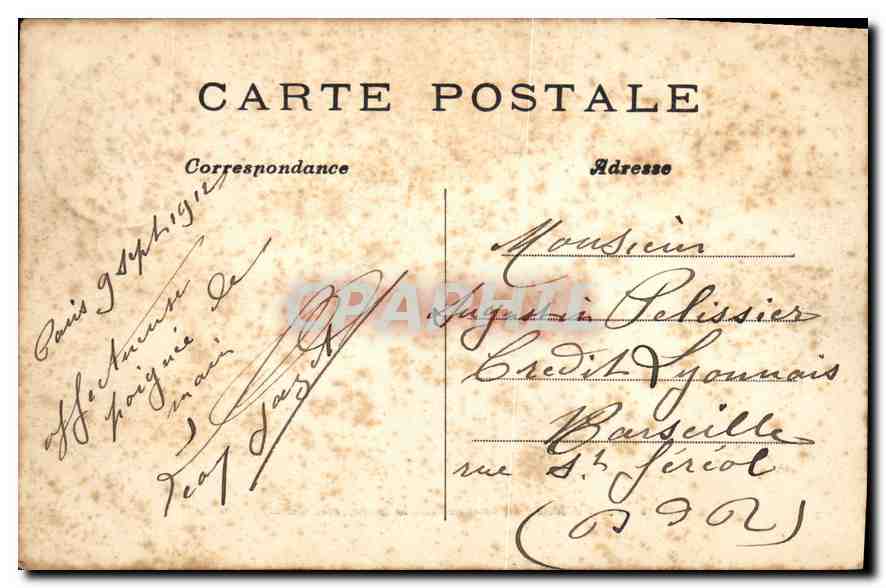 CARTE POSTALE
Correspondance
Adresse
Paris 9 sept 1912
affectueuse
poignée de
main
Monsieur
Augustin Pelissier
Credit Lyonnais
Marseille
rue St Féréol
(B D R)
CPAPHIL